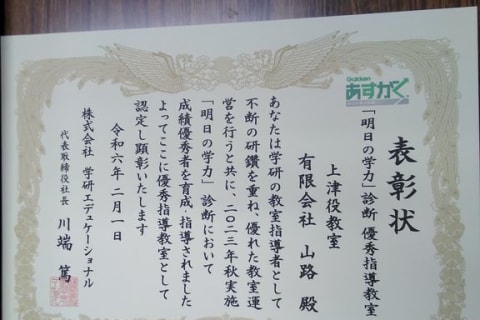 Gakken
あすがく
表彰状
「明日の学力」診断 優秀指導教室
上津役教室
有限会社 山路 殿
あなたは学研の教室指導者として
不断の研鑽を重ね、優れた教室運
営を行うと共に、二〇二三年秋実施
「明日の学力」診断において
成績優秀者を育成・指導されました
よってここに優秀指導教室として
認定し顕彰いたします
令和六年二月一日
株式会社 学研エデュケーショナル
代表取締役社長 川端 篤